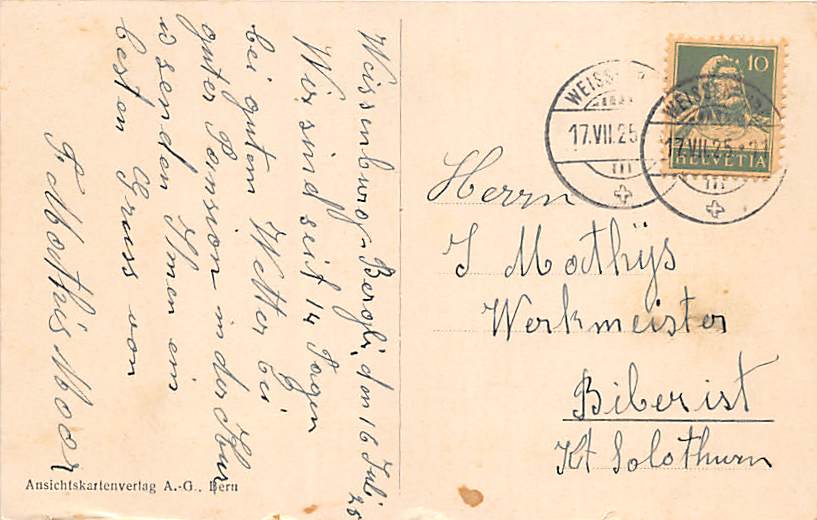 Weissenburg-Bergli, den 16 Juli 25
Wir sind seit 14 Tagen
bei gutem Wetter bei
guter Pension in der Kur
u senden Ihnen ein
besten Gruss von
F. Mathis Moor
Ansichtskartenverlag A.-G., Bern
WEISSENBURG
17.VII.25
WEISSENBURG
17.VII.25
10
HELVETIA
Herrn
J Mathÿs
Werkmeister
Biberist
Kt Solothurn